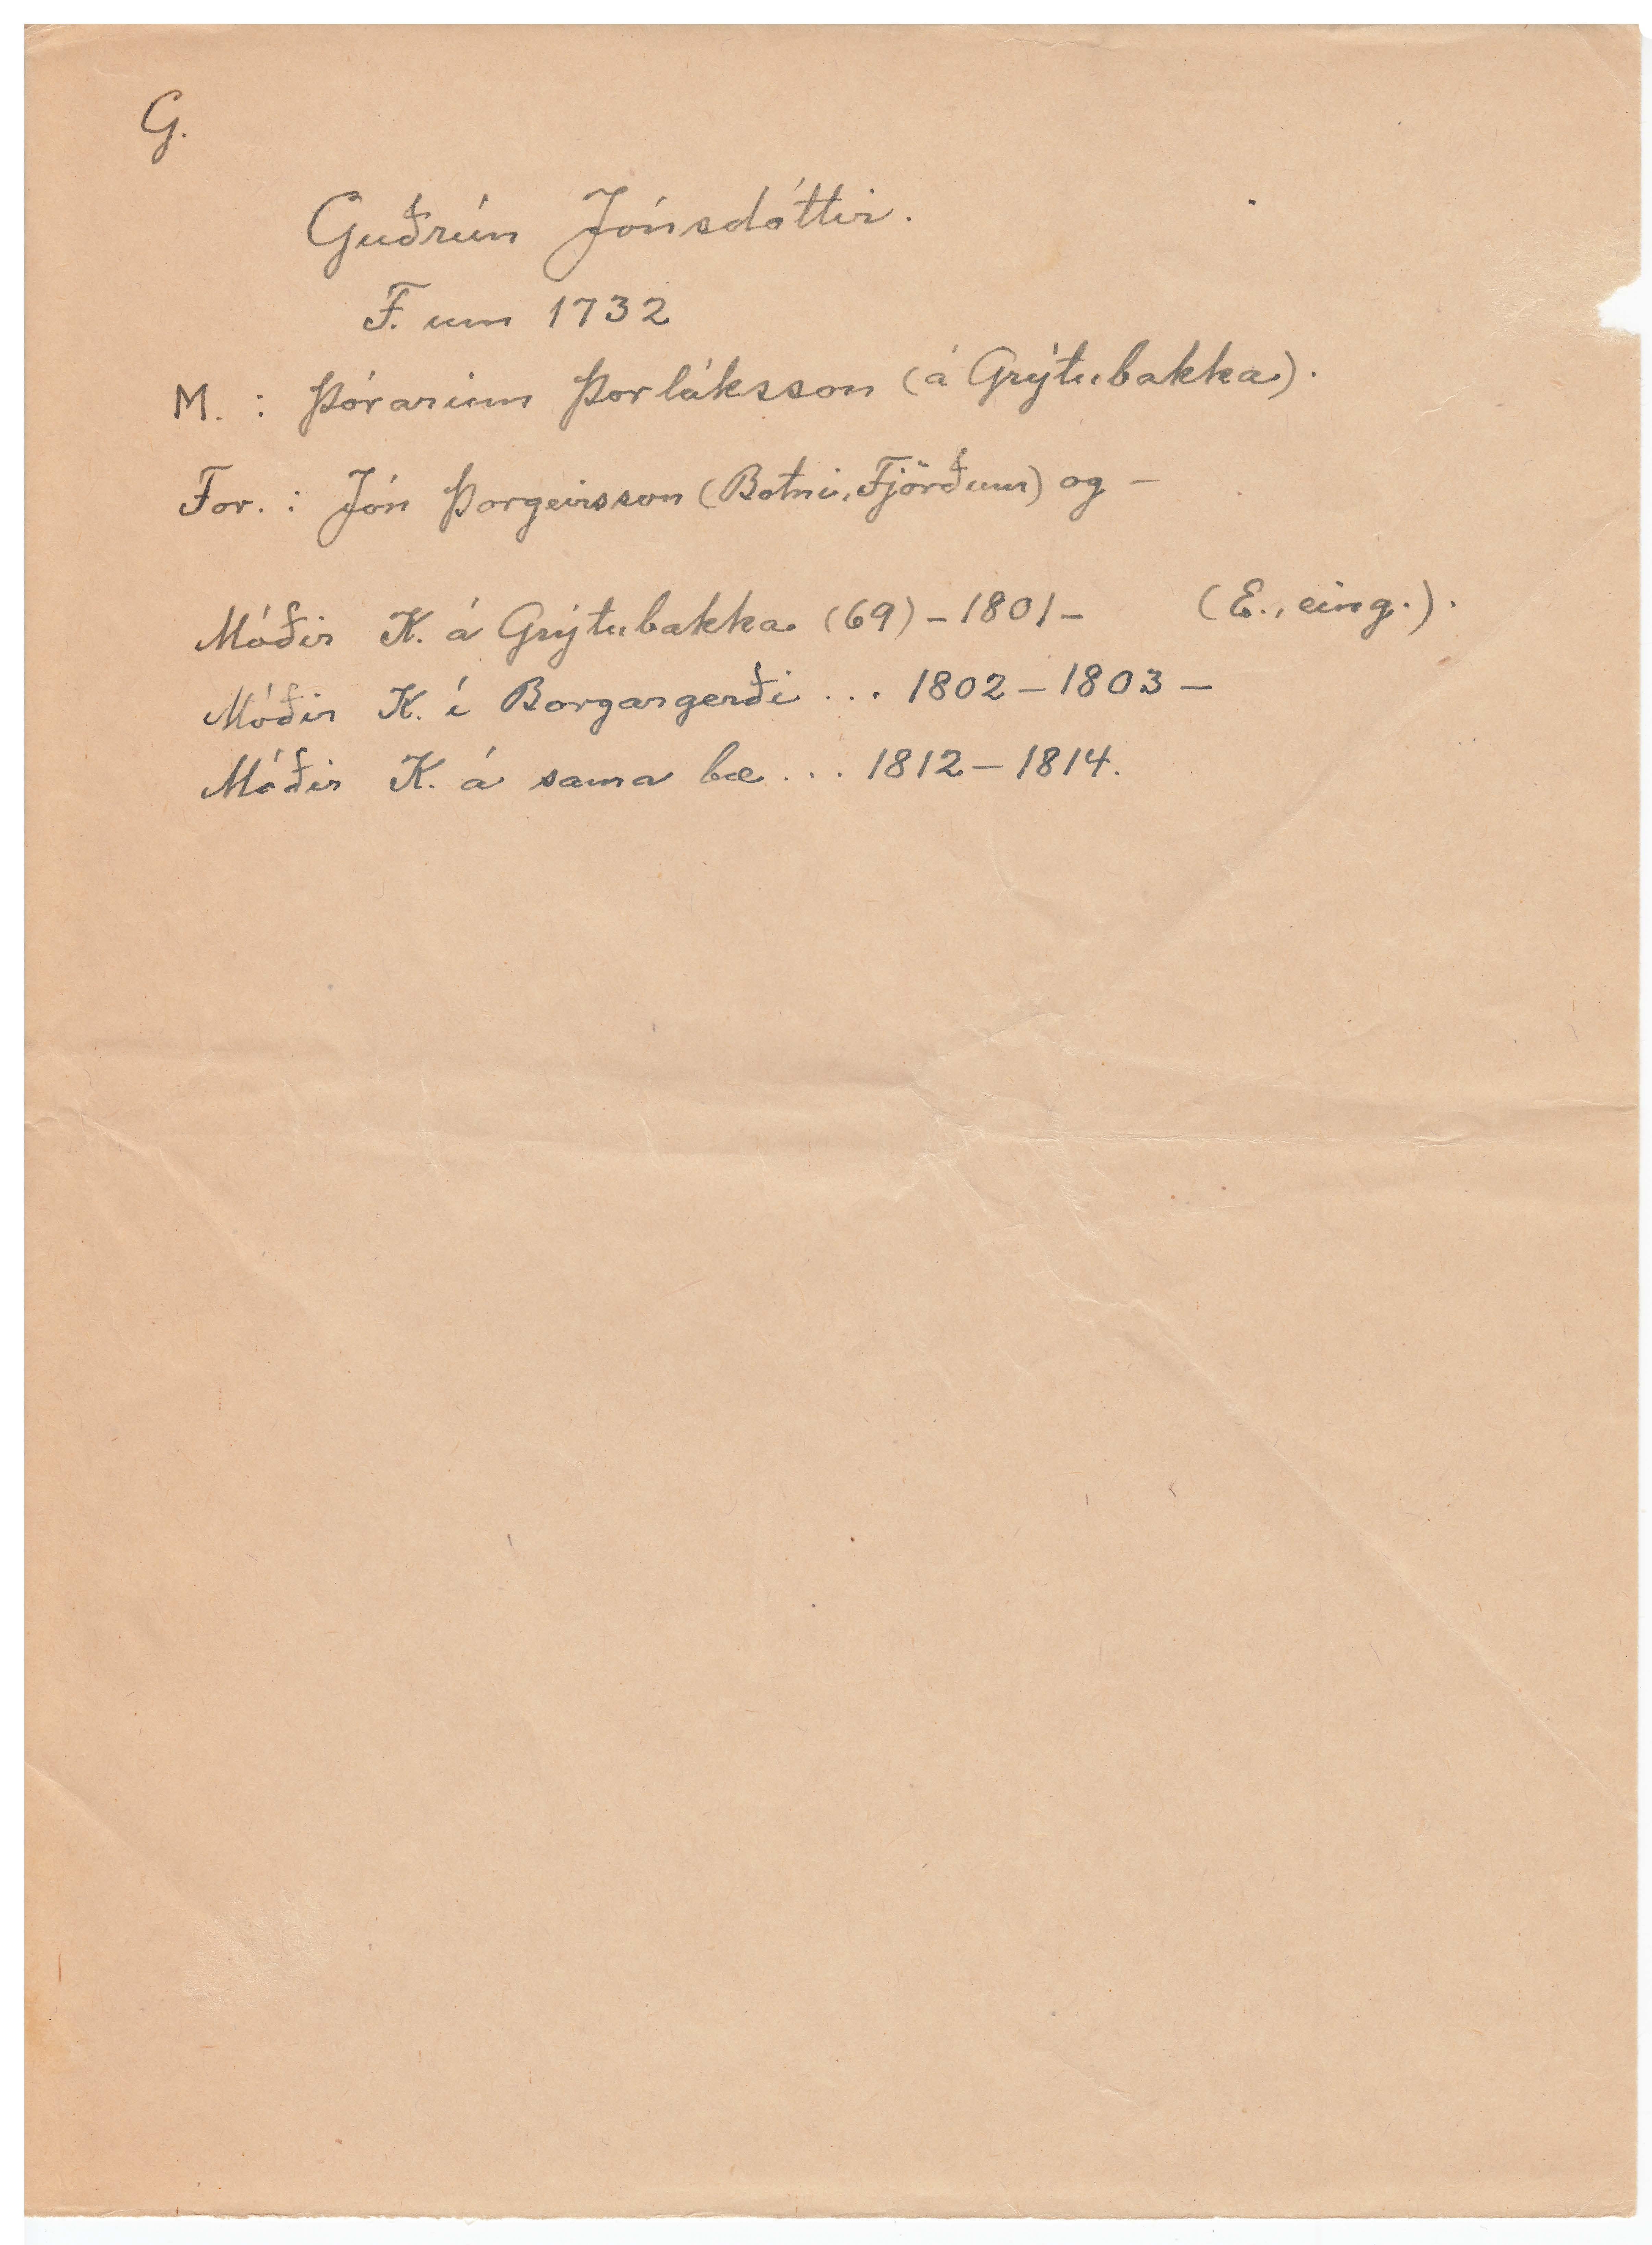 G.
Guðrún Jónsdóttir.
F. um 1732
M. : Þórarinn Þorláksson (á Grýtubakka).
For. : Jón Þorgeirsson (Botni, Fjörðum) og –
Móðir K. á Grýtubakka (69) – 1801 – (E., eing.).
Móðir K. í Borgargerði ... 1802 – 1803 –
Móðir K. á sama bæ ... 1812 – 1814.